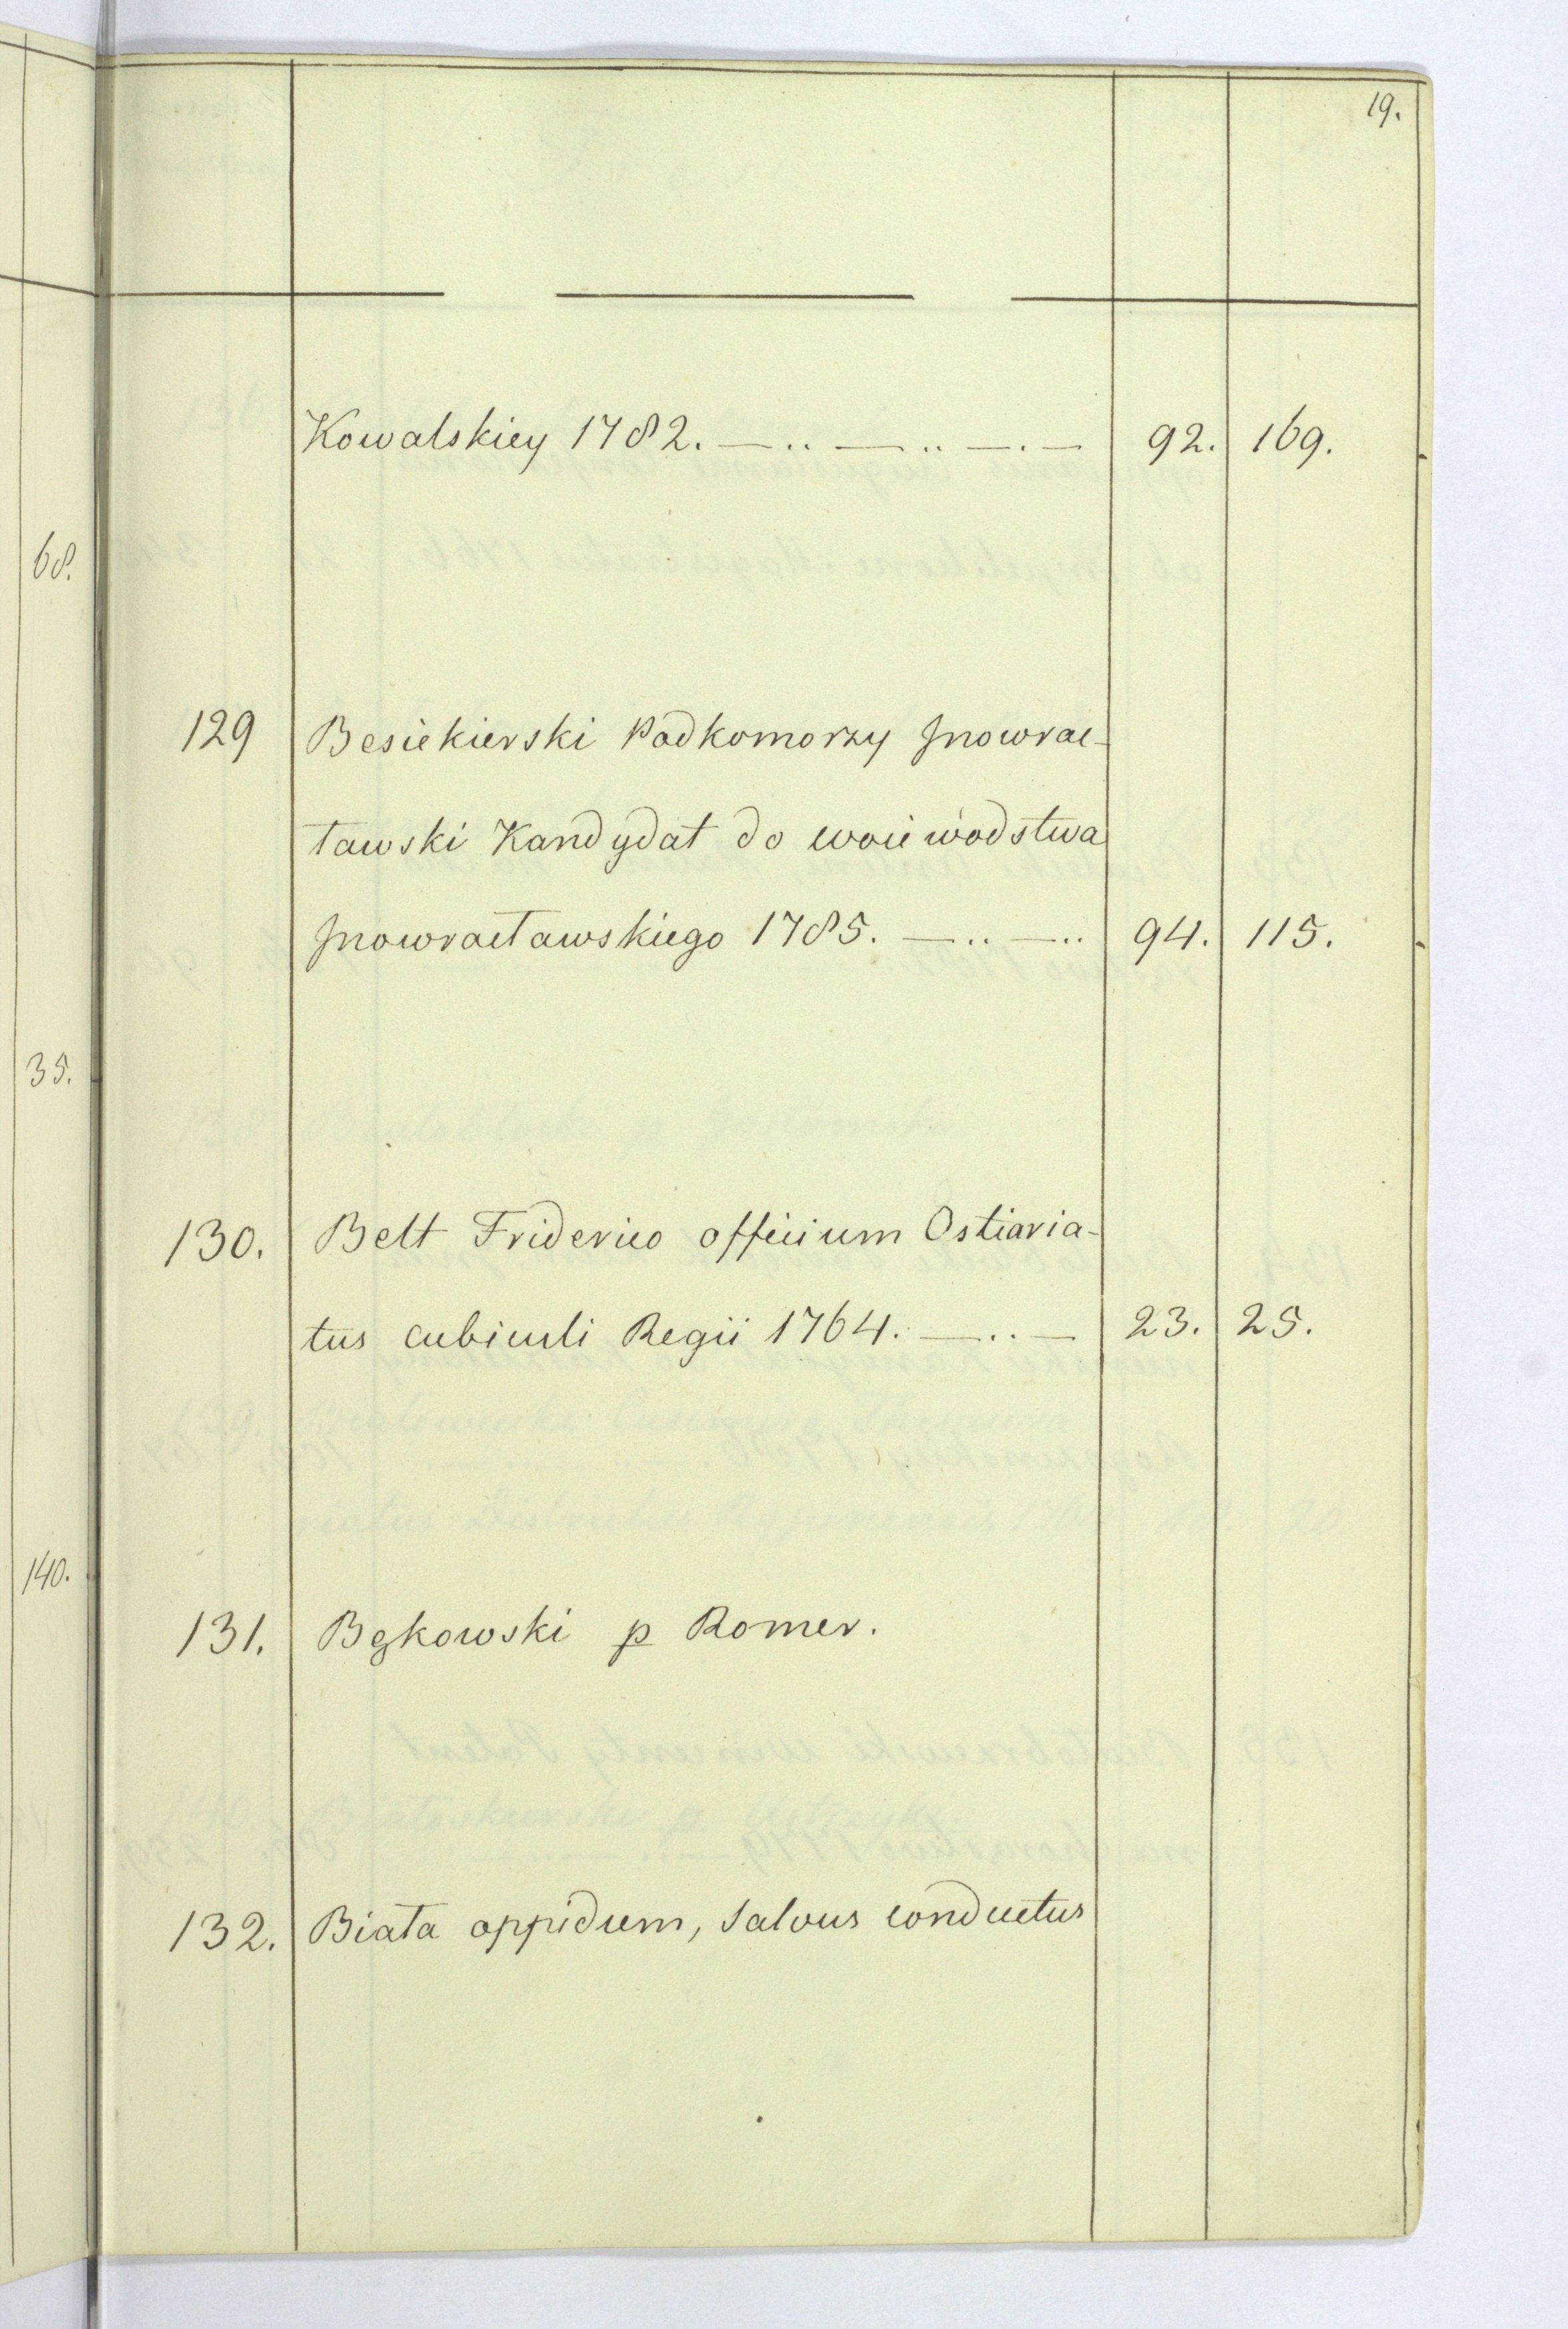 19.
Kowalskiey 1782. —..—..—.— 92. 169.
68.
129 Besiekierski Podkomorzy Jnowrac-
ławski Kandydat do woiewodstwa
Jnowracławskiego 1785. —..—.. 94. 115.
35.
130. Belt Friderico officium Ostiaria-
tus cubiculi Regii 1764. —..— 23. 25.
140.
131. Bękowski p Romer.
132. Biała oppidum, salvus conductus